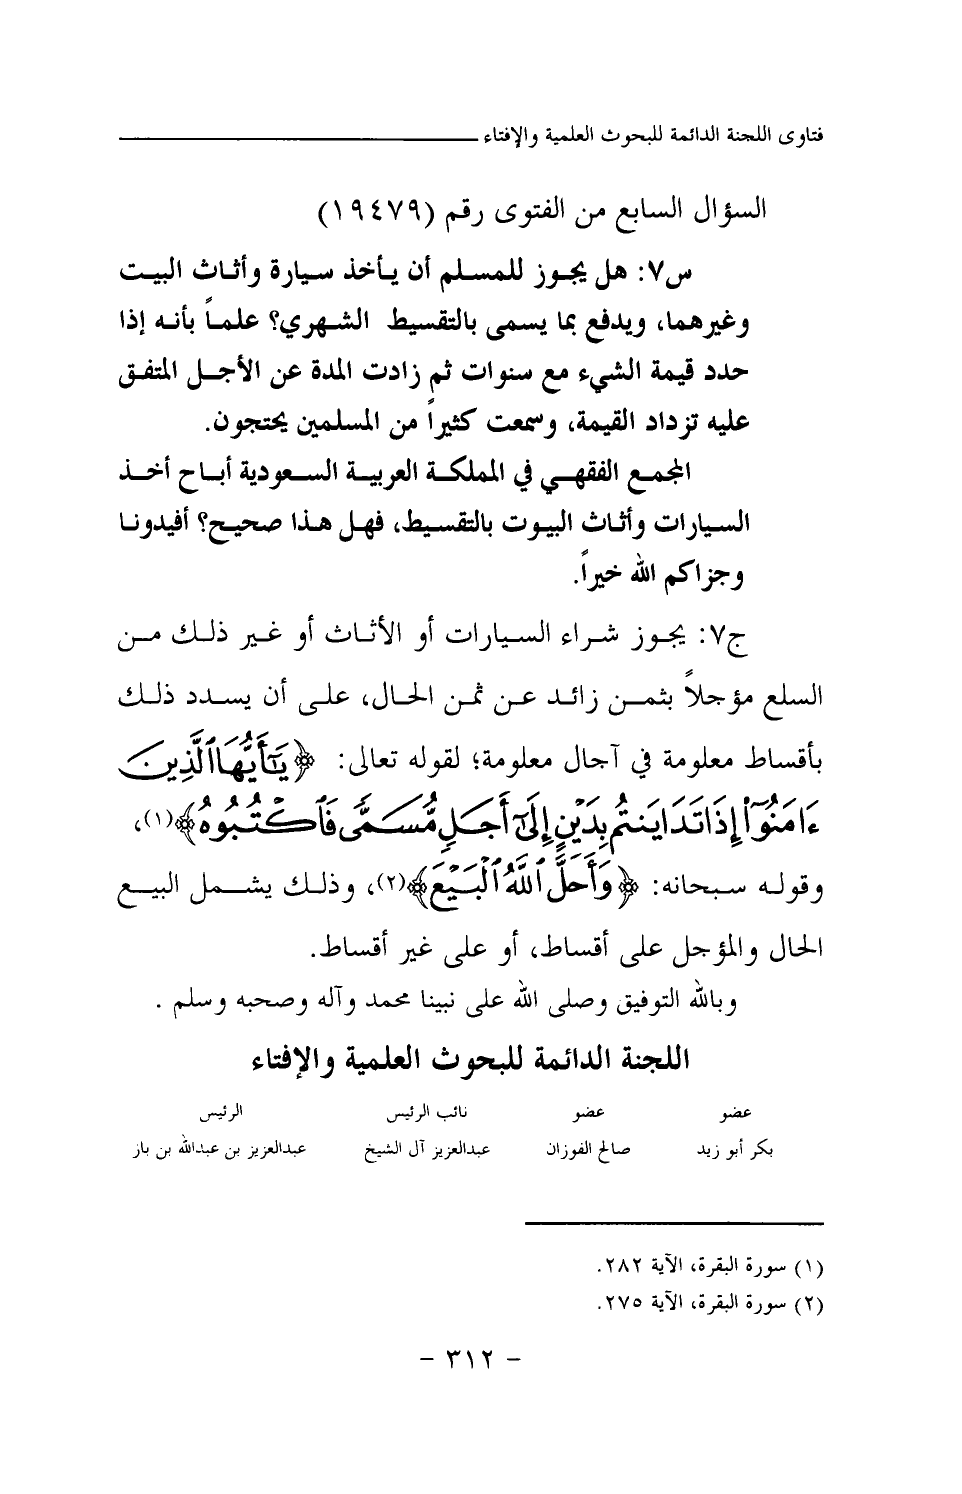 فتاوى اللجنة الدائمة للبحوث العلمية والإفتاء
السؤال السابع من الفتوى رقم (١٩٤٧٩)
س٧: هل يجوز للمسلم أن يأخذ سيارة وأثاث البيت
وغيرهما، ويدفع بما يسمى بالتقسيط الشهري؟ علماً بأنه إذا
حدد قيمة الشيء مع سنوات ثم زادت المدة عن الأجل المتفق
عليه تزداد القيمة، وسمعت كثيراً من المسلمين يحتجون.
المجمع الفقهي في المملكة العربية السعودية أباح أخذ
السيارات وأثاث البيوت بالتقسيط، فهل هذا صحيح؟ أفيدونا
وجزاكم الله خيراً.
ج٧: يجوز شراء السيارات أو الأثاث أو غير ذلك من
السلع مؤجلاً بثمن زائد عن ثمن الحال، على أن يسدد ذلك
بأقساط معلومة في آجال معلومة؛ لقوله تعالى: ﴿يَٰٓأَيُّهَا ٱلَّذِينَ
ءَامَنُوٓا۟ إِذَا تَدَايَنتُم بِدَيْنٍ إِلَىٰٓ أَجَلٍ مُّسَمًّى فَٱكْتُبُوهُ﴾(١)،
وقوله سبحانه: ﴿وَأَحَلَّ ٱللَّهُ ٱلْبَيْعَ﴾(٢)، وذلك يشمل البيع
الحال والمؤجل على أقساط، أو على غير أقساط.
وبالله التوفيق وصلى الله على نبينا محمد وآله وصحبه وسلم .
اللجنة الدائمة للبحوث العلمية والإفتاء
عضو عضو نائب الرئيس الرئيس
بكر أبو زيد صالح الفوزان عبدالعزيز آل الشيخ عبدالعزيز بن عبدالله بن باز
(١) سورة البقرة، الآية ٢٨٢.
(٢) سورة البقرة، الآية ٢٧٥.
- ٣١٢ -